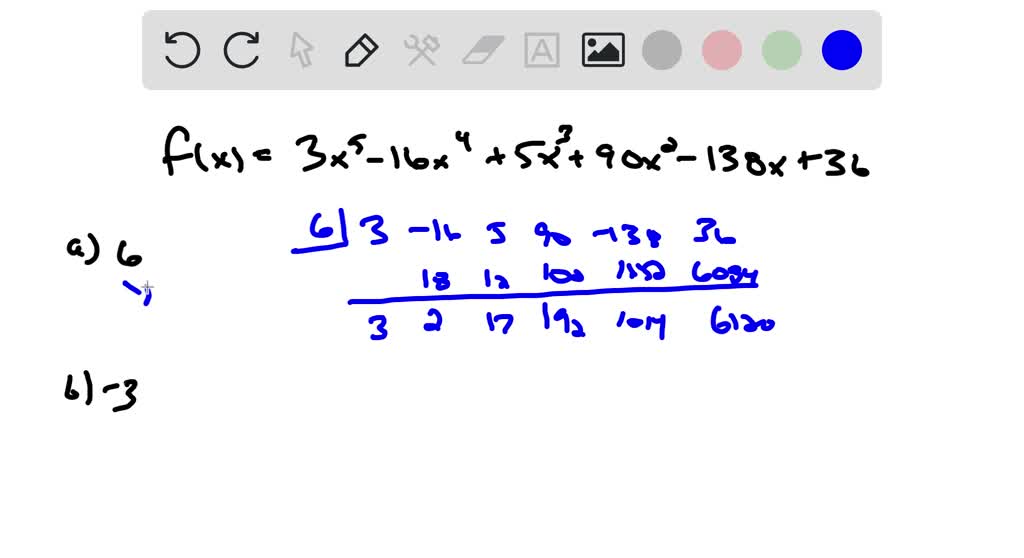 A
f(x) = 3x⁵ - 16x⁴ + 5x³ + 90x² - 138x + 36
a) 6
6 | 3 -16 5 90 -138 36
18 12 1152 6084
3 2 17 192 1014 6120
b) -3